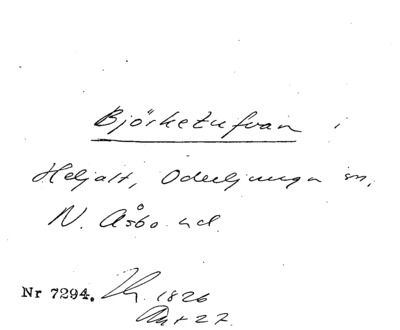 Björketufvan i
Heljalt, Oderljunga sn,
N. Åsbo hd.
Nr 7294. 1826
27.